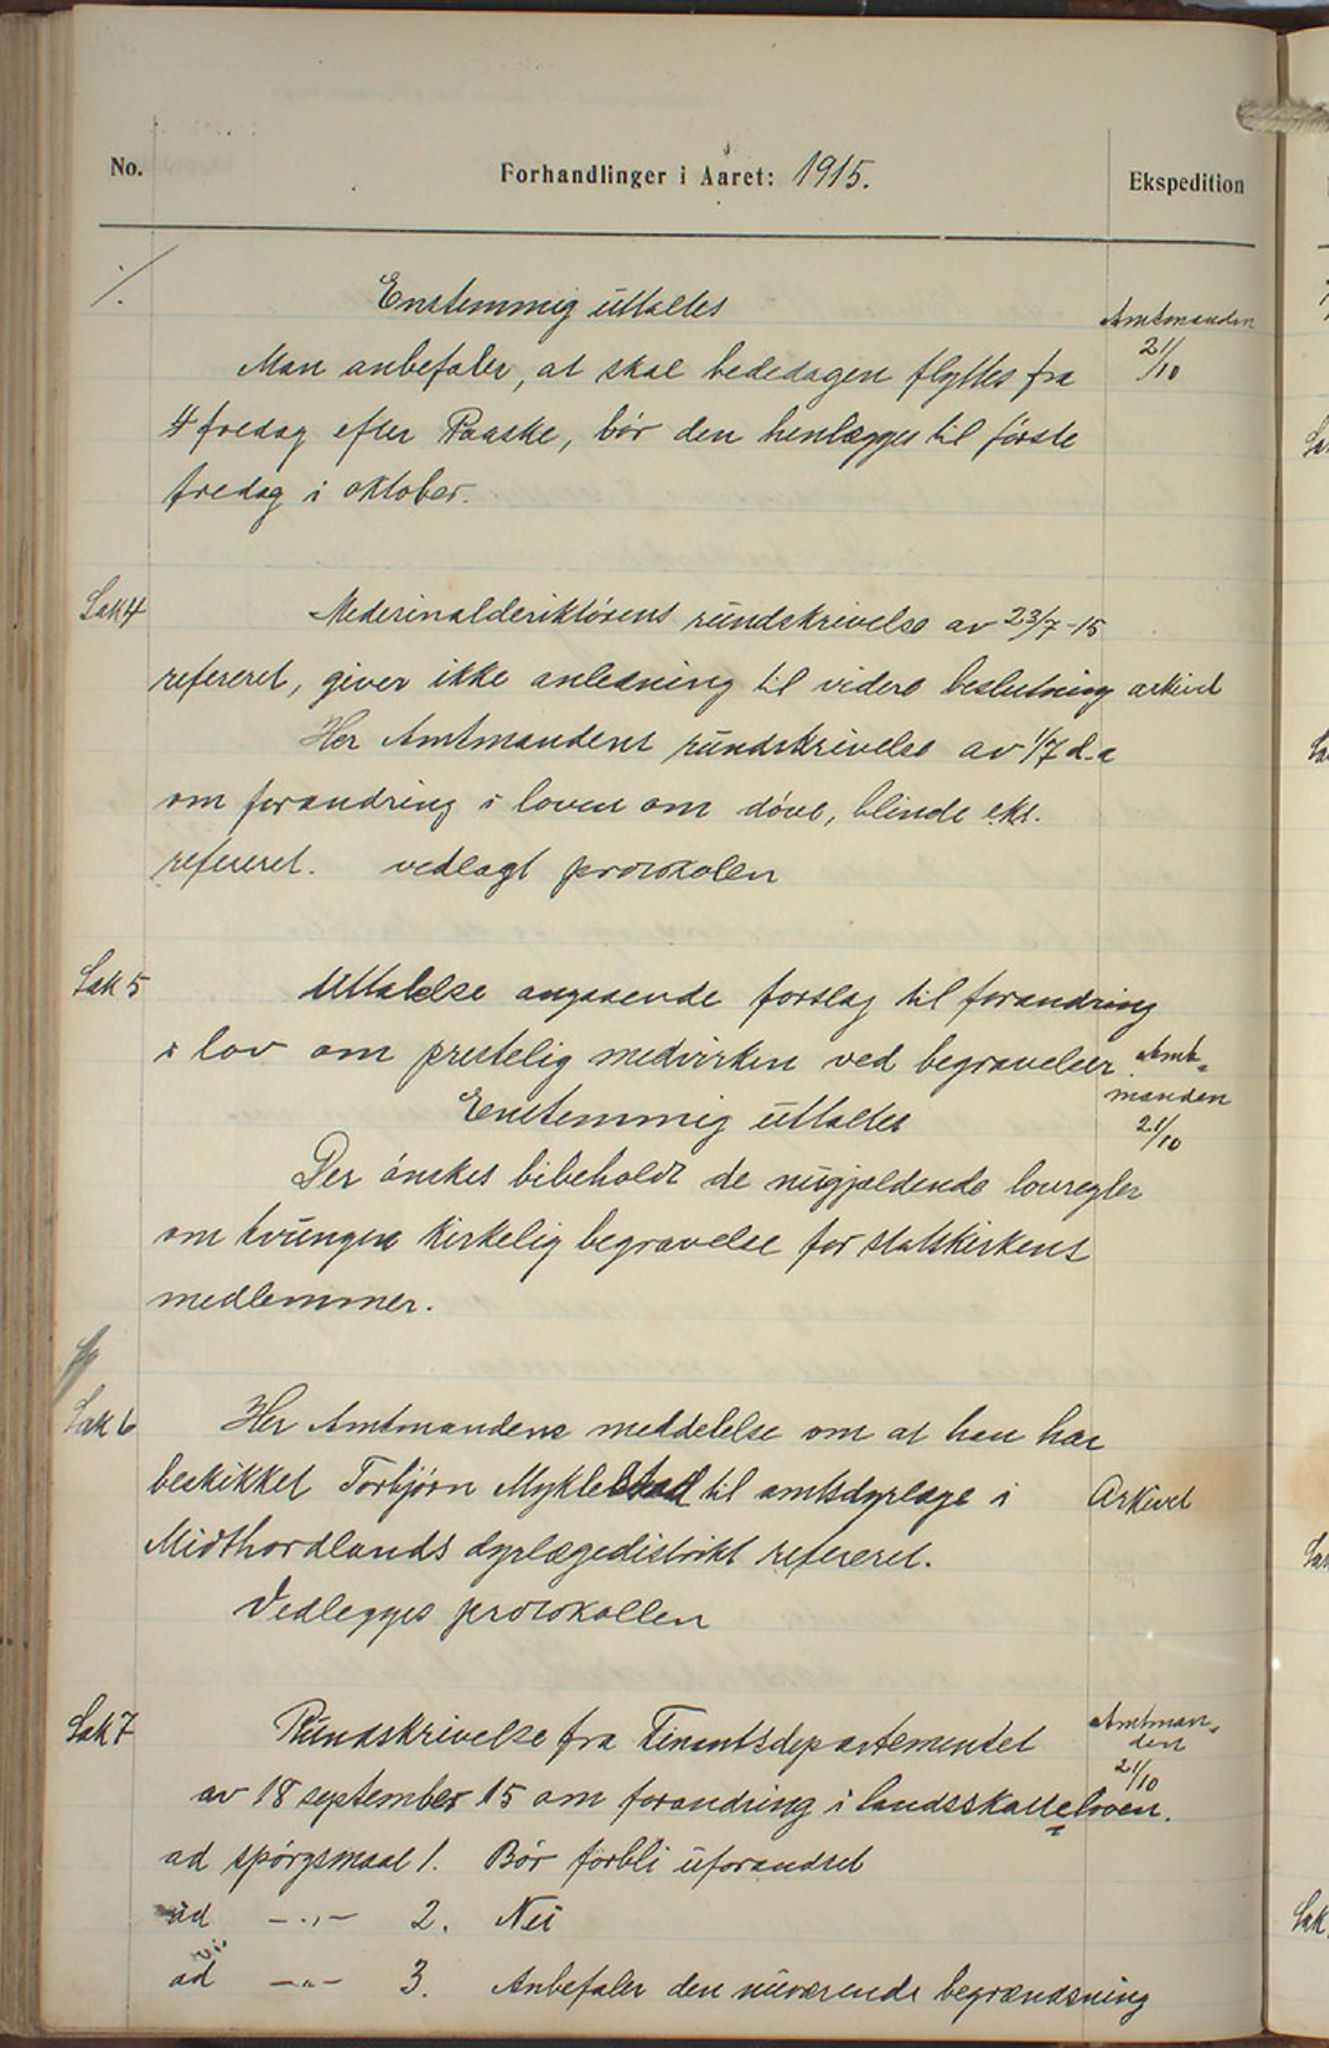 No.
Forhandlinger i Aaret: 1915.
Ekspedition
./.
Enstemmig uttaltes
Amtmanden
21/10
Man anbefaler, at skal bededagen flyttes fra
4 fredag efter Paaske, bør den henlægges til første
fredag i oktober.
Sak 4
Mederinalderiktørens rundskrivelse av 23/7-15
refereret, giver ikke anledning til videre beslutning
arkivet
Her Amtmandens rundskrivelse av 1/7 d.a
om forandring i loven om døve, blinde ekt.
refereret. vedlagt protokolen
Sak 5
Uttalelse angaaende forslag til forandring
i lov om prestelig medvirken ved begravelser.
Amt-
manden
21/10
Enstemmig uttaltes
Der ønskes bibeholdt de nugjældende lovregler
om tvungen kirkelig begravelse for statskirkens
medlemmer.
Sak 6
Her Amtmandens meddelelse om at han har
beskikket Torbjørn Myklestad til amtsdyrlæge i
Arkivet
Midthordlands dyrlægedistrikt refereret.
Vedlegges protokollen
Sak 7
Rundskrivelse fra Finantsdepartementet
Amtman-
den
21/10
av 18 september 15 om forandring i landsskatteloven.
ad spørgsmaal 1. Bør forbli uforandret
ad -"- 2. Nei
ad -"- 3. Anbefaler den nuværende begrændsning
Sak